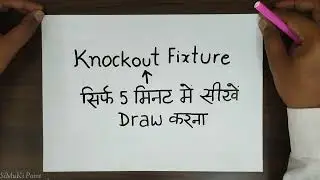 Knockout Fixture
सिर्फ 5 मिनट मे सीखें
Draw करना
StMuKs Point